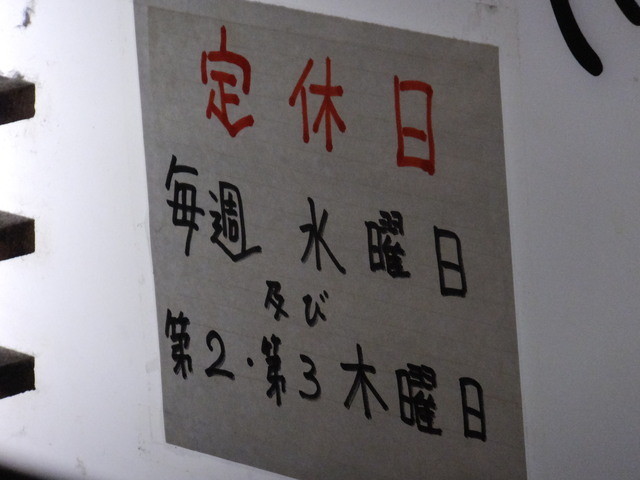 定休日
毎週 水曜日
及び
第2・第3木曜日